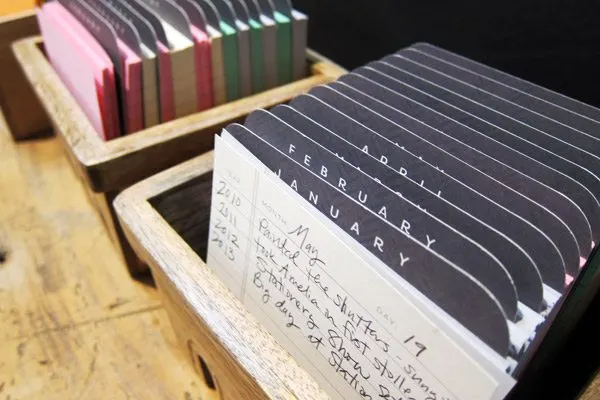 MAY
APRIL
FEBRUARY
JANUARY
YEAR
MONTH: May
DAY: 19
2010 Painted the shutters - sunny
2011 took Amelia in first stoller
2012 Stationery Show
2013 Big day at Station